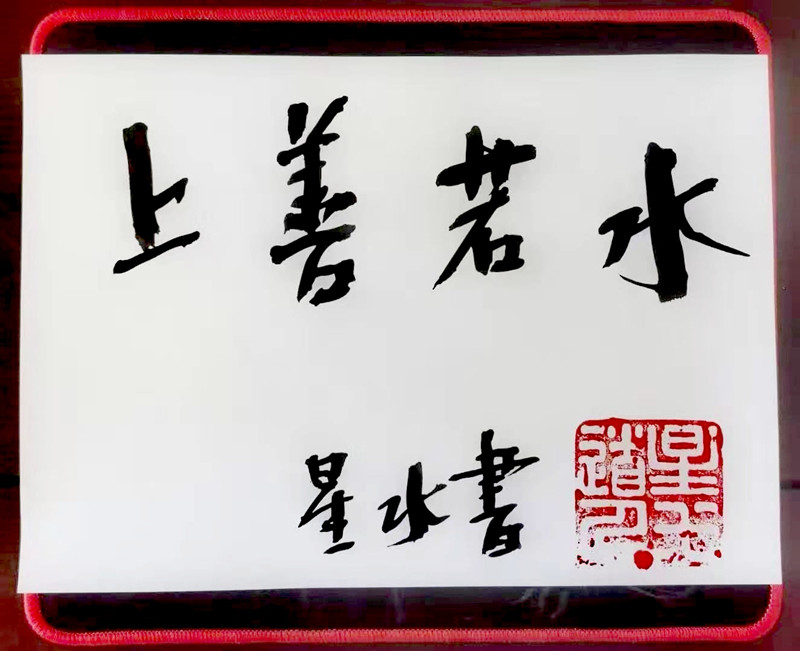 上善若水
星水書